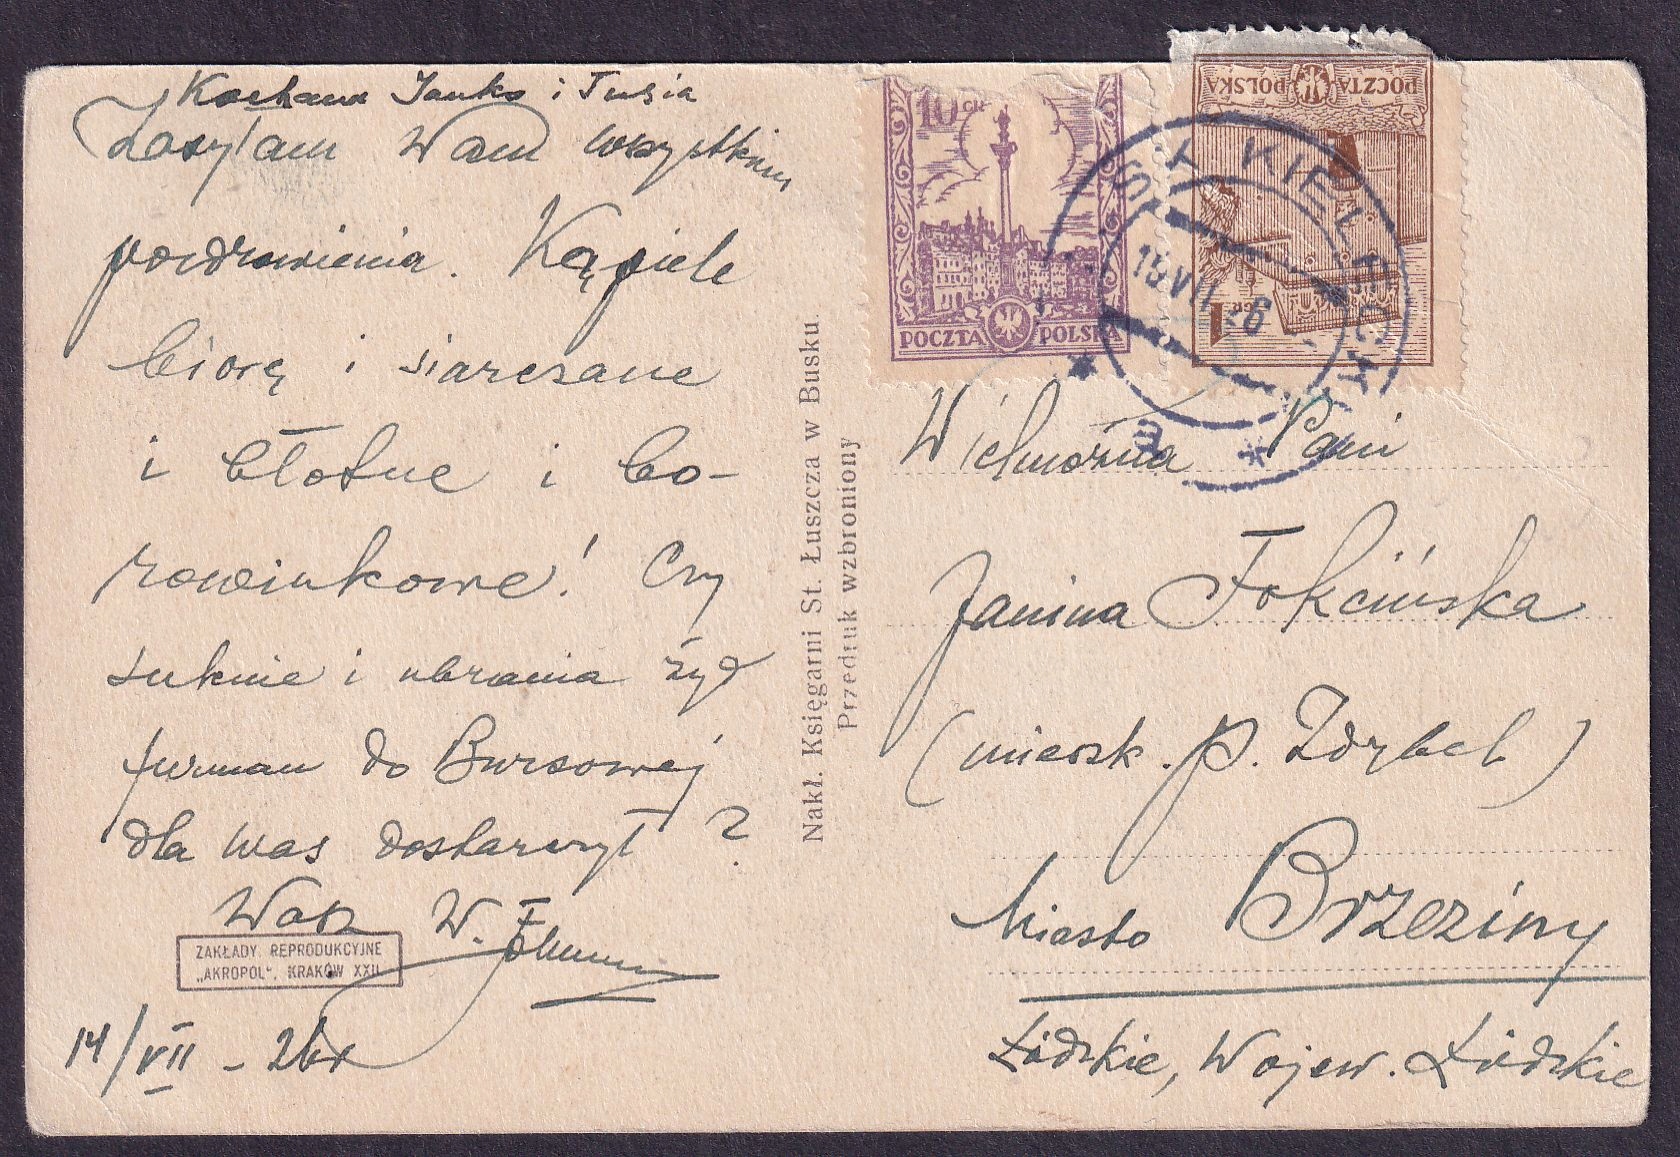 Kochana Janko i Tusia
Zasyłam Wam wszystkim
pozdrowienia. Kąpiele
biorę i siarczane
i błotne i bo-
rowinkowe! Czy
suknie i ubrania żyd
furman do Bursowej
dla was dostarczył?
Wasz W.
14/VII - 26r
ZAKŁADY REPRODUKCYJNE
„AKROPOL", KRAKÓW XXII
Nakł. Księgarni St. Łuszcza w Busku.
Przedruk wzbroniony
10 GR
POCZTA POLSKA
POCZTA POLSKA
1
KIELECKI
15 VII 26
Wielmożna Pani
Janina Fokcińska
(mieszk. p. Zdrbel)
Miasto Brzeziny
Łódzkie, Wojew. Łódzkie